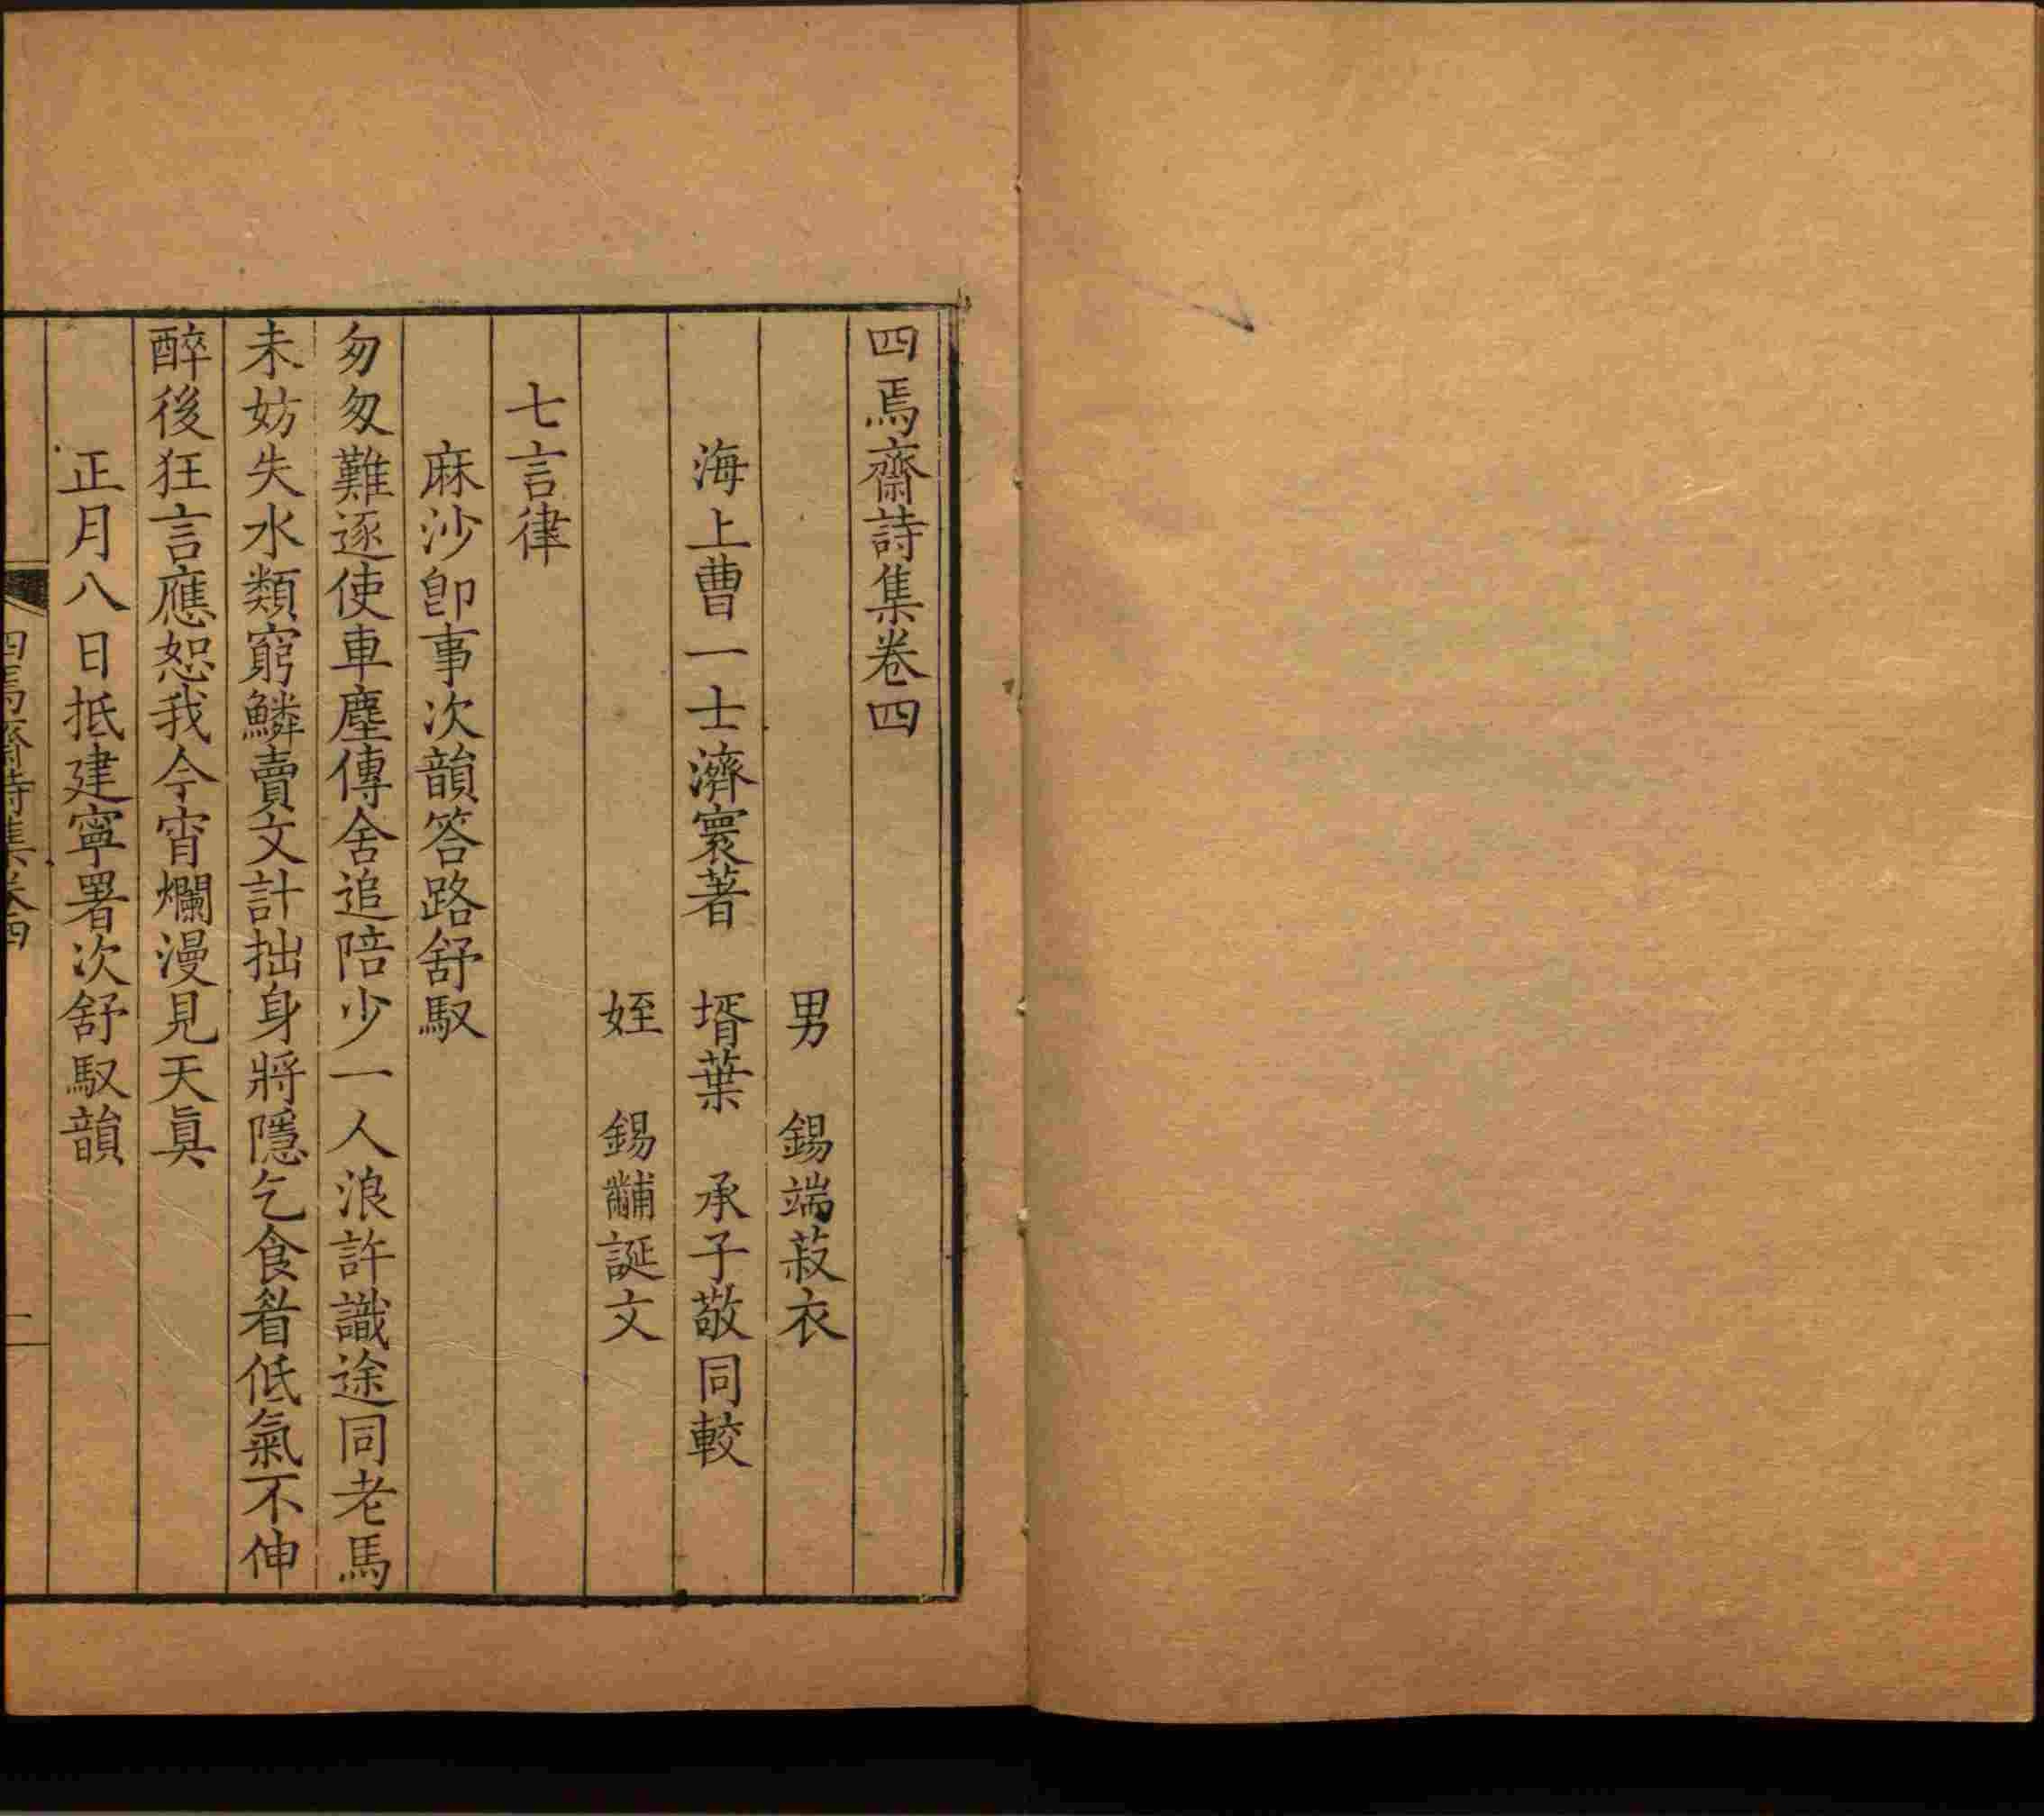 四焉齋詩集卷四
男　錫端菽衣
海上曹一士濟寰著　壻葉　承子敬同較
姪　錫黼誕文
七言律
麻沙卽事次韻答路舒馭
匆匆難逐使車塵傳舍追陪少一人浪許識途同老馬
未妨失水類窮鱗賣文計拙身將隱乞食着低氣不伸
醉後狂言應恕我今宵爛漫見天眞
正月八日抵建寧署次舒馭韻
四焉齋詩集卷四
一